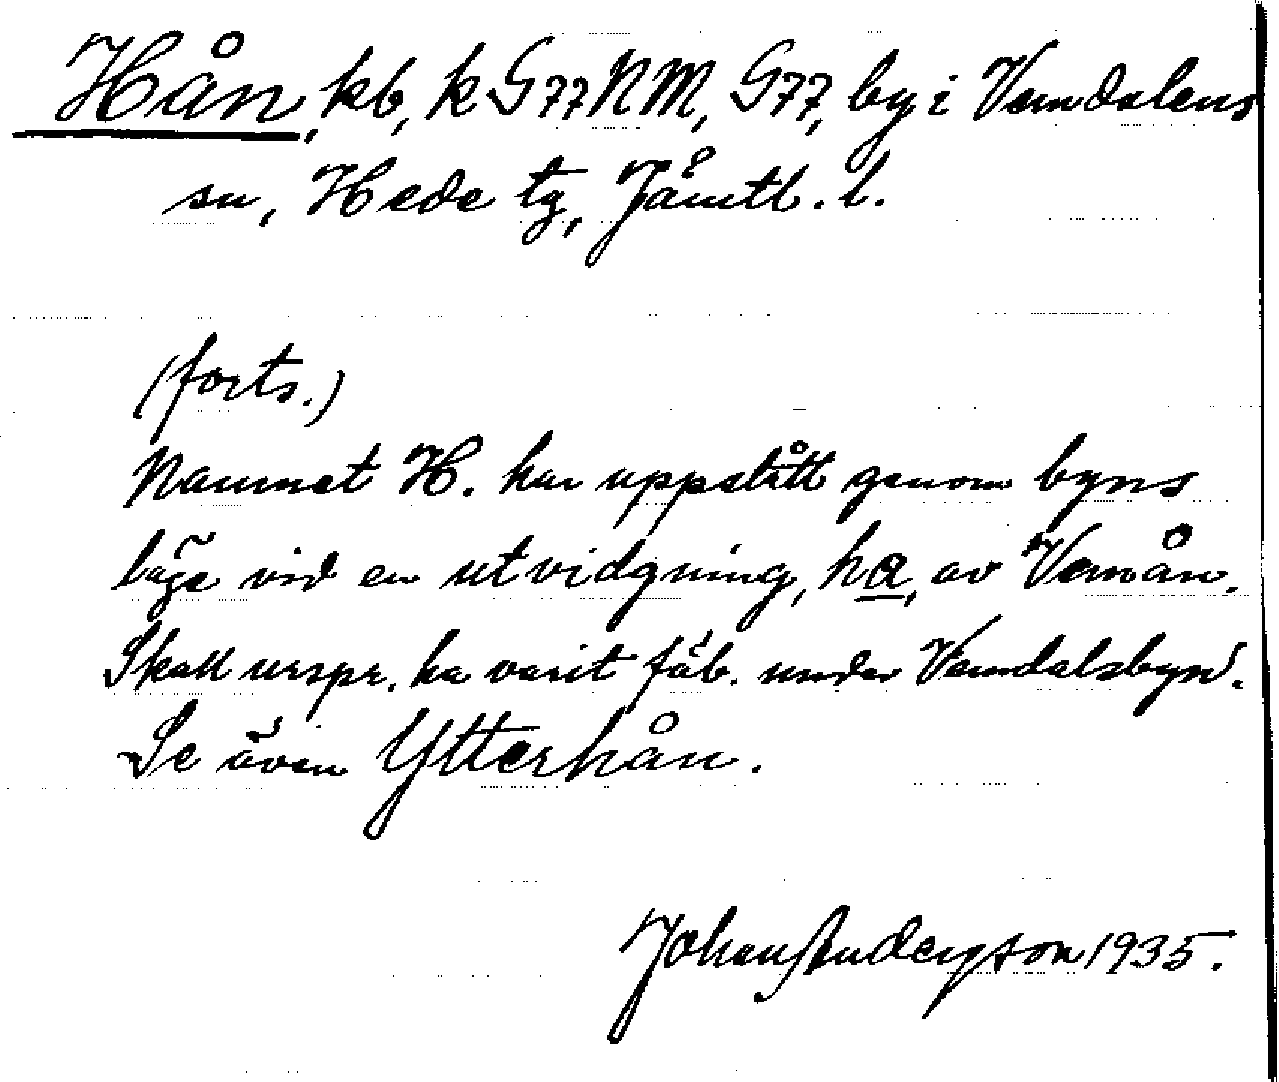 Hån, kb, k G77NM, G77, by i Vemdalens
sn, Hede tg, Jämtl. l.
(forts.)
Namnet H. har uppstått genom byns
läge vid en utvidgning, ha, av Vemån.
Skall urspr. ha varit fäb. under Vemdalsbyn.
Se även Ytterhån.
Johan Anderson 1935.